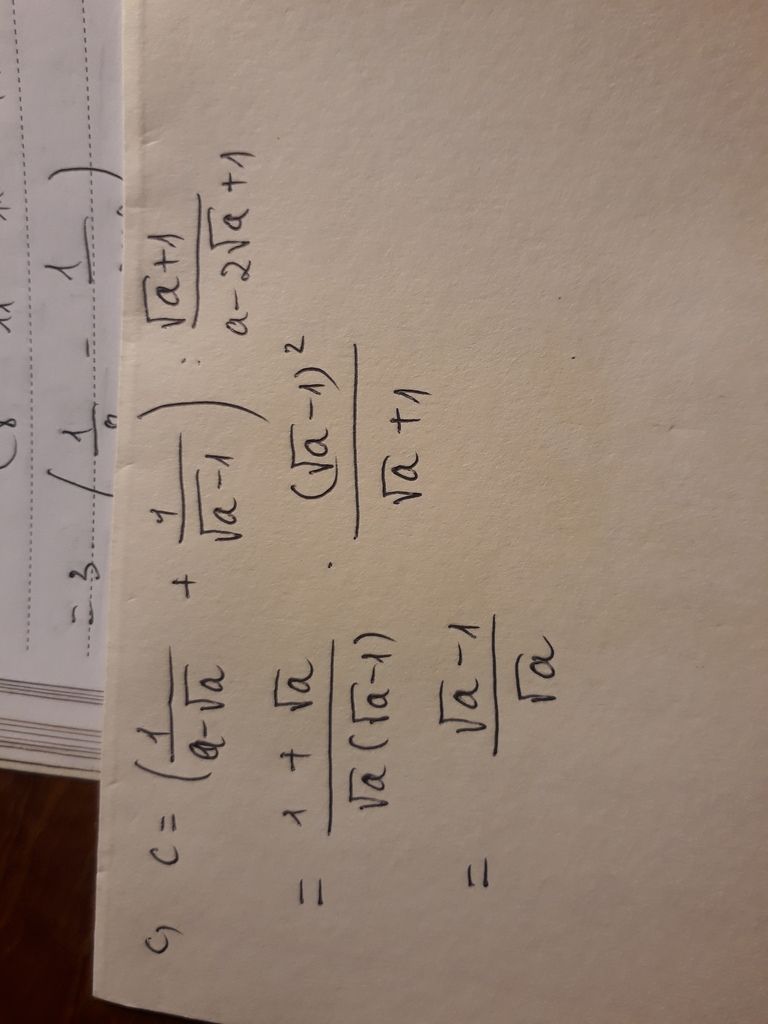 = 3 ( 1/a - 1 )
c, C = (1/(a-√a) + 1/(√a-1)) : (√a+1)/(a-2√a+1)
= (1+√a)/(√a(√a-1)) . (√a-1)²/(√a+1)
= (√a-1)/√a